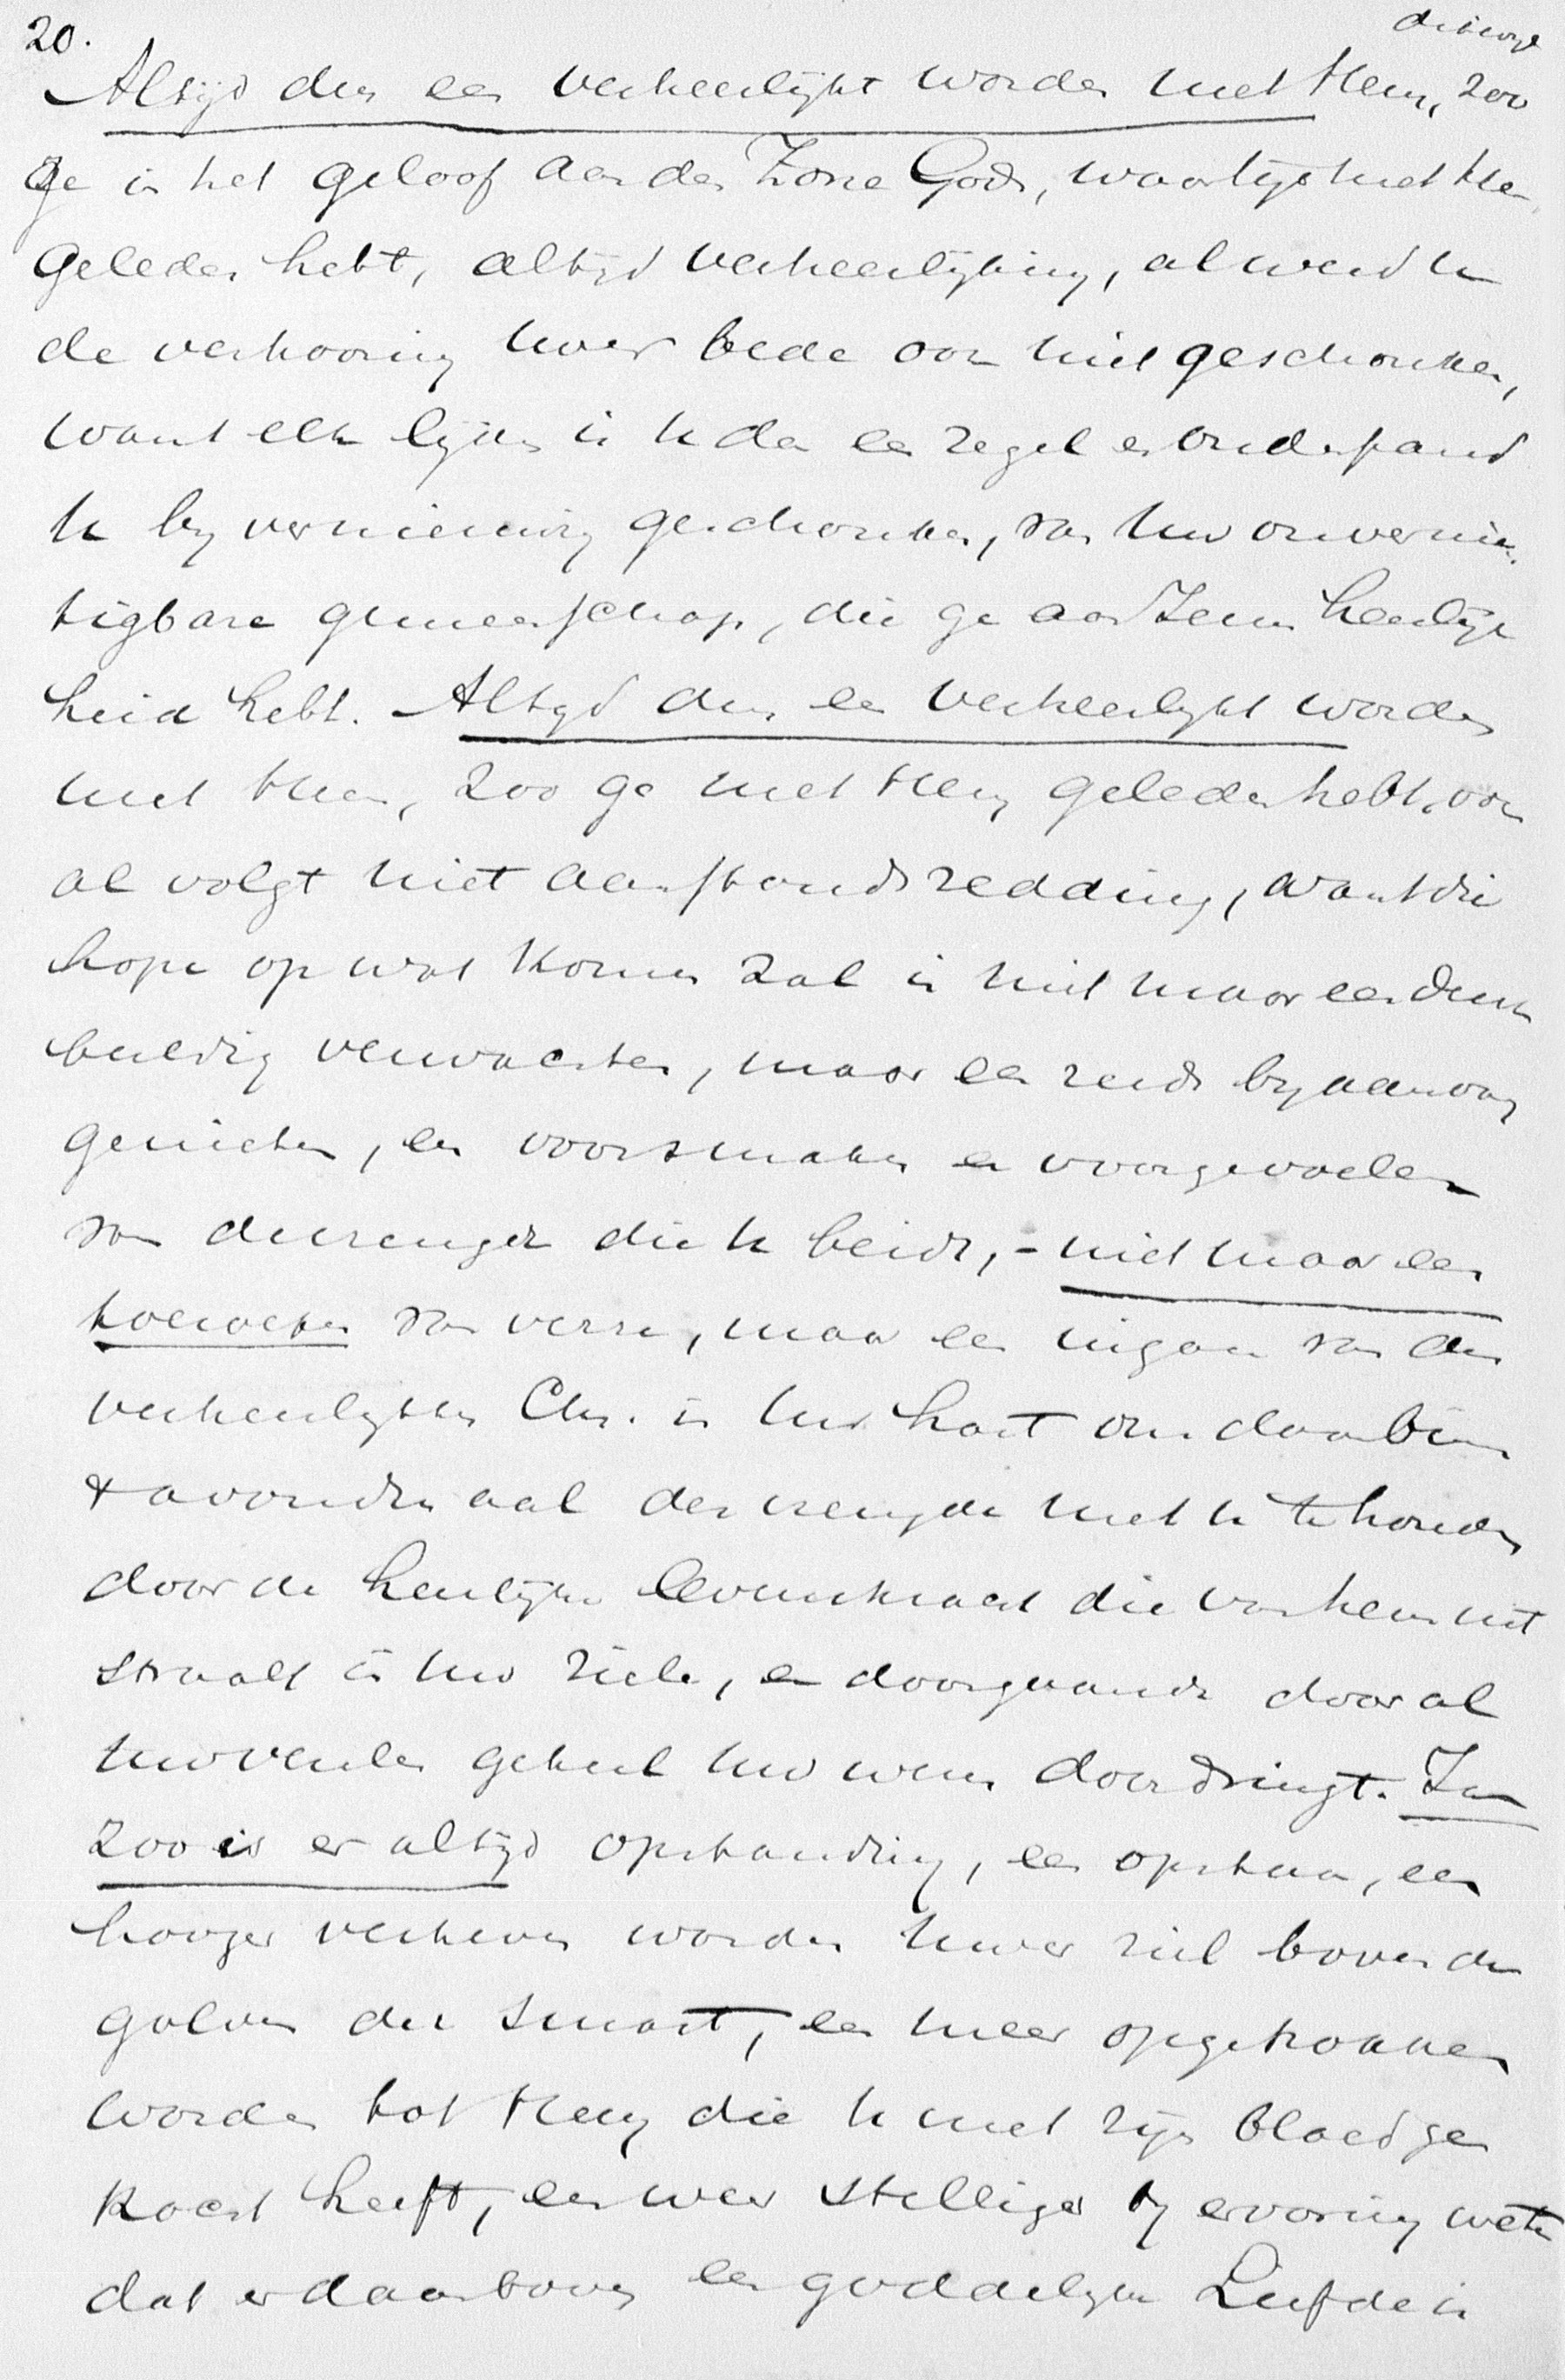 20.
Altijd dus een verheerlijkt worden met Hem, zoo
ge in het geloof aan den Zone Gods, waarlijk met Hem
geleden hebt, altijd verheerlijking, al werd u
de verhooring uwer bede ook niet geschonken,
want elk lijden is u dan een zegel en onderpand
u bij vernieuwing geschonken, van uw onvernie-
tigbare gemeenschap, die ge aan Zeine heerlijk
heid hebt. Altijd dus een verheerlijkt worden
met Hem, zoo ge met Hem geleden hebt, ook
al volgt niet aanstonds redding, want die
hope op wat komen zal is niet maar een denk
beeldig verwachten, maar een reeds bij aanvang
genieten, een voorsmaken en voorgevoelen
van de vreugde die u beidt, - niet maar een
toeroepen van verre, maar een ingaan van den
verheerlijkten Chr. in uw hart om daarbinnen
't avondmaal der vreugde met u te houden
door de heerlijke levenskracht die van hem uit
straalt in uw ziele, en doorgaande door al
uw geheel uw wezen doordringt. Ja
zoo is er altijd opstanding, een opstaan, een
hooger verheven worden uwer ziel boven de
golven der smart, een meer opgetrokken
worden tot Hem die u met zijn bloed ge
kocht heeft, een weer stelliger bij ervaring weten
dat er daarboven een goddelijke Liefde is